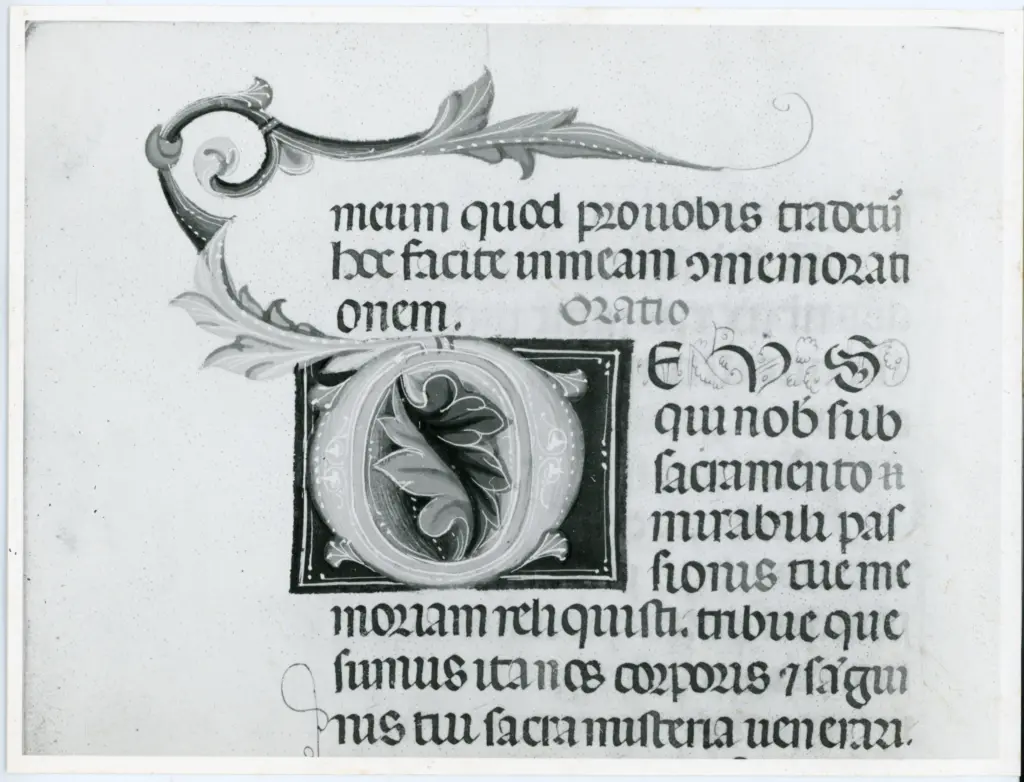 meum quod pro uobis tradetũ
hoc facite in meam ↄmemorati
onem. Oratio
DEUS
qui nob̃ sub
sacramento
mirabili pas
sionis tue me
moriam reliquisti. tribue que
sumus ita nos corporis ⁊ sãgui
nis tui sacra misteria uenerari.